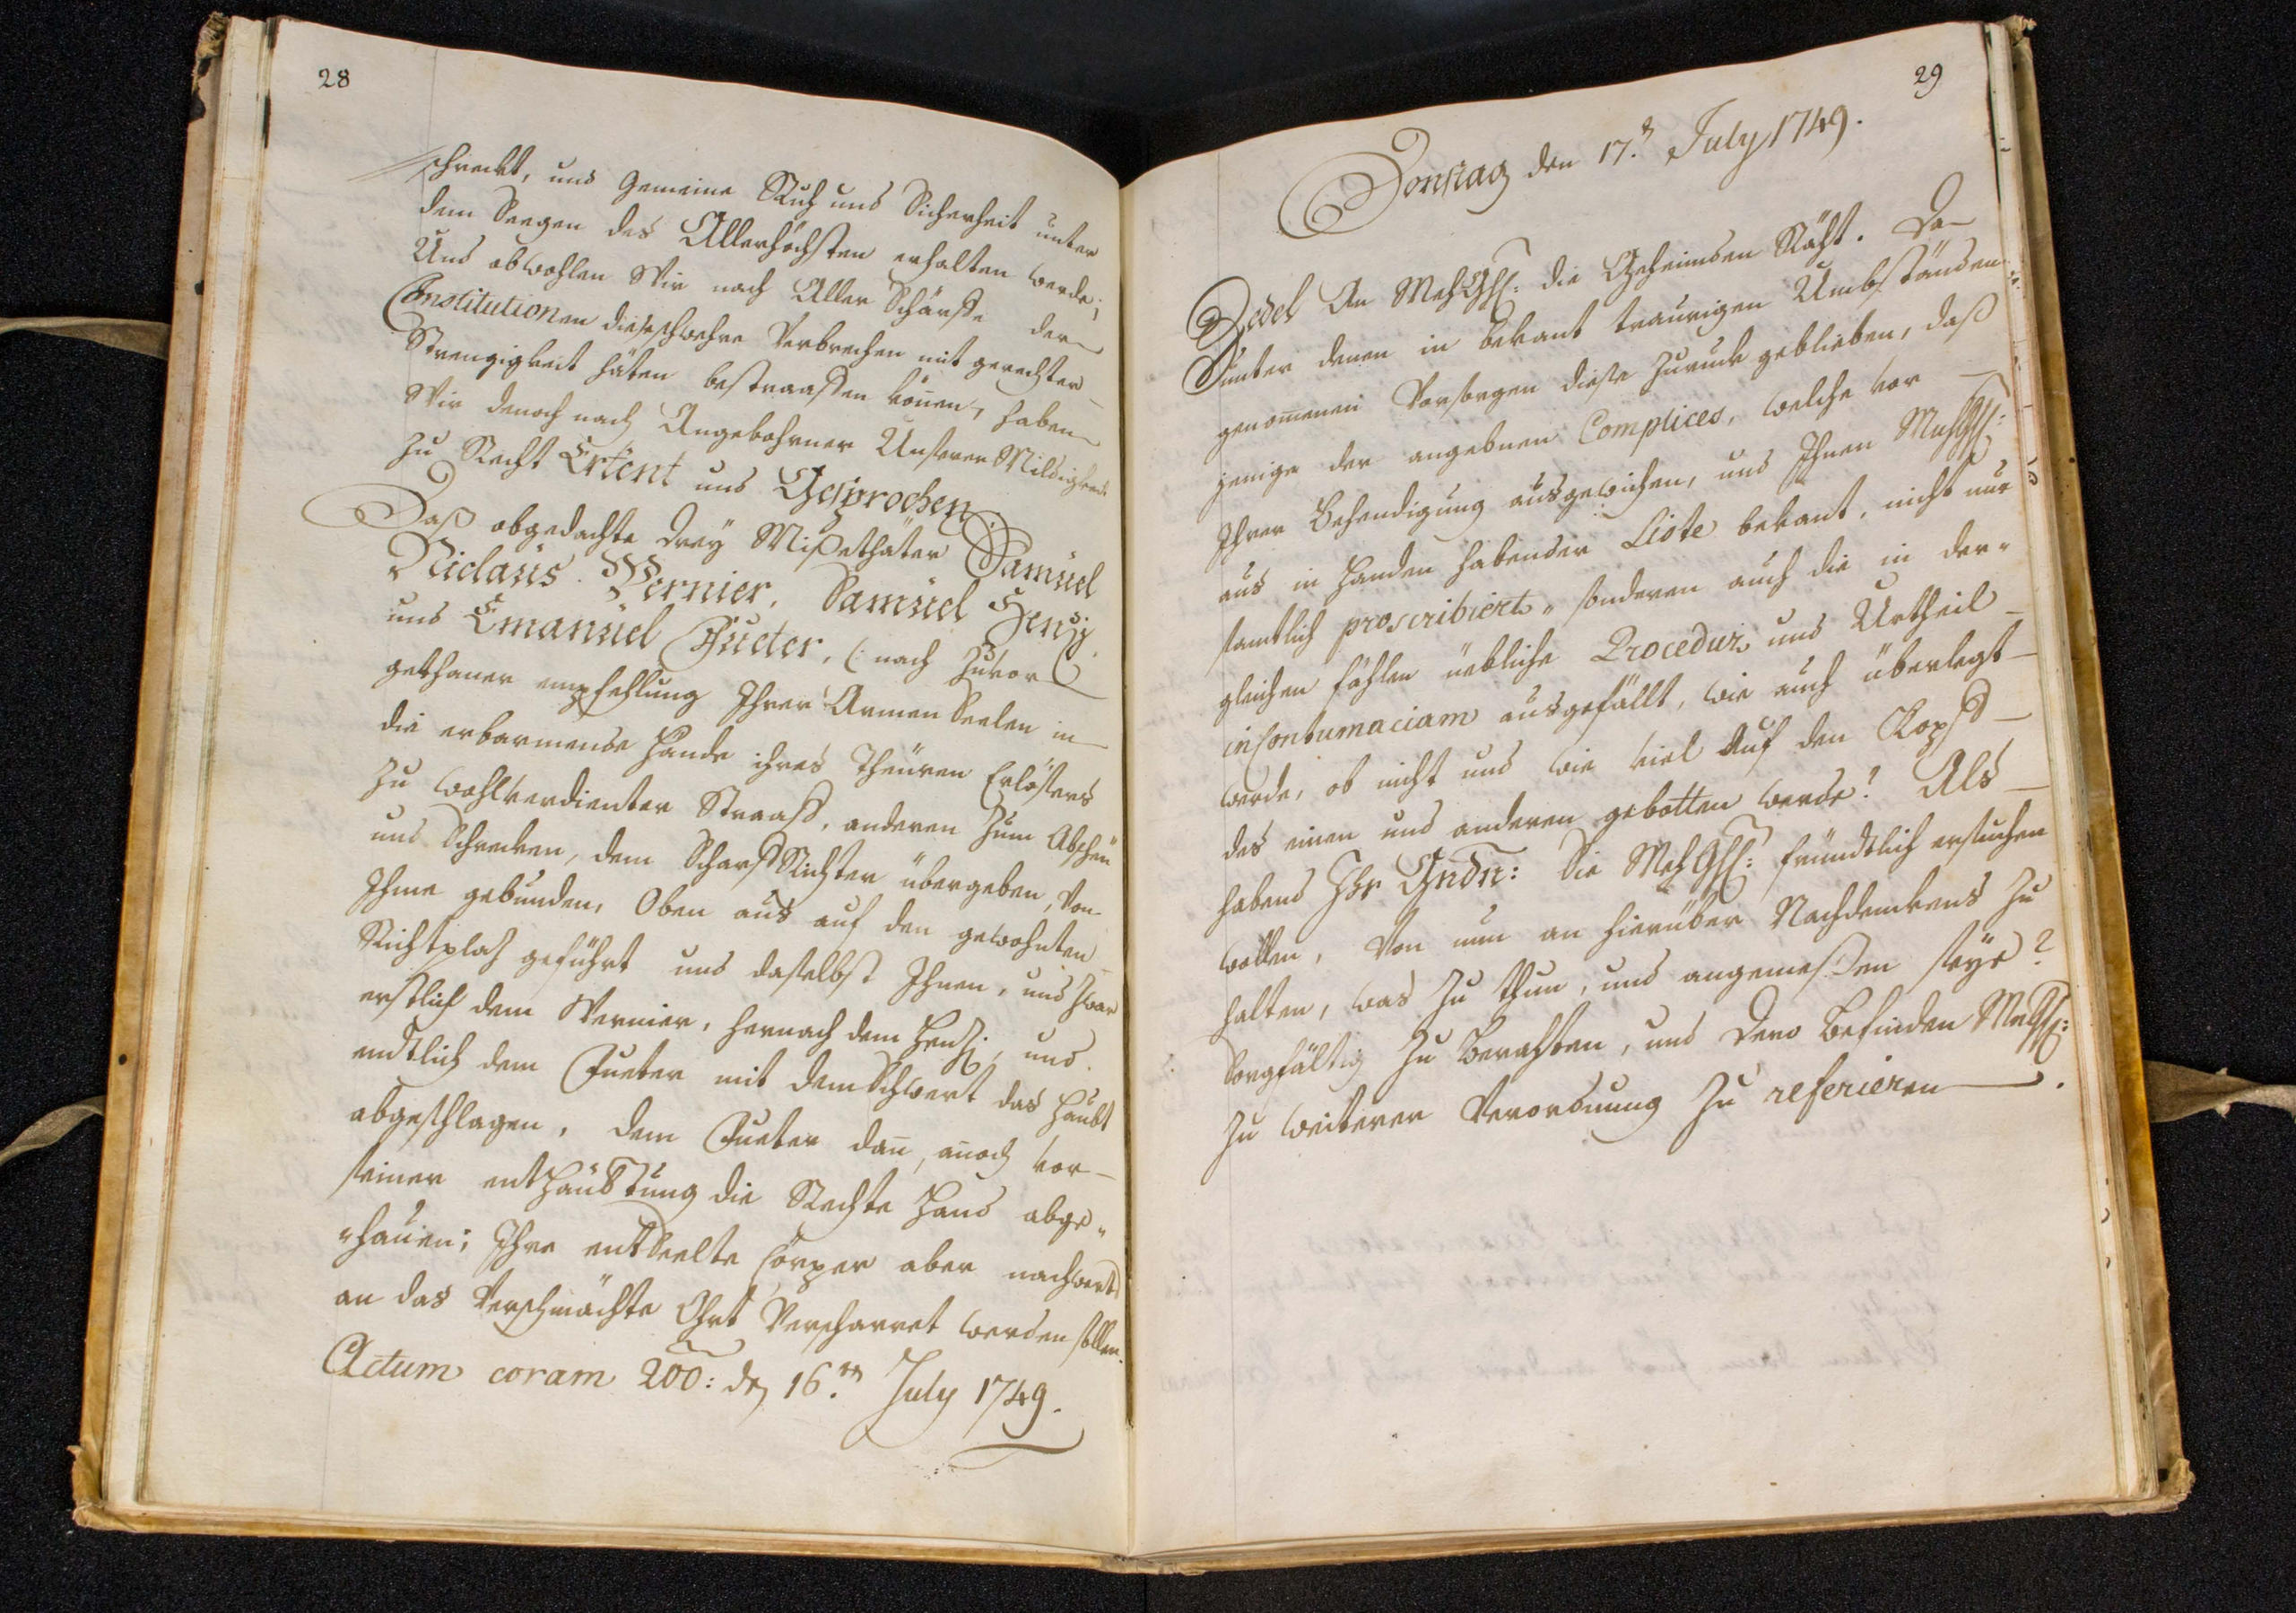 28
schreckt, und Gemeine Ruh und Sicherheit unter
dem Seegen des Allerhöchsten erhalten werde;
Und obwohlen Wir nach Aller Schärffe der
Constitutionen diese schwehre Verbrechen mit gerechter
Strengigkeit häten bestraaffen können, haben
Wir denoch nach Angebohrner Unserer Mildigkeit
zu Recht Erkent und Gesprochen.
Daß obgedachte Drey Mißethäter Samuel
Niclaus Wernier, Samuel Henzj
und Emanuel Fueter, (: nach zuvor
gethaner empfehlung Ihrer Armen Seelen in
die erbarmende Hände ihres Theüren Erlösers
zu wohlverdienter Straaff, anderen zum Abscheü
und Schrecken, dem ScharffRichter übergeben, Von
Ihme gebunden, Oben aus auf den gewohnten
Richtplaz geführt und daselbst Ihnen, und zwar
erstlich dem Wernier, hernach dem Henzj, und
endtlich dem Fueter mit dem Schwert das Haubt
abgeschlagen, dem Fueter dan̄, an̄och vor
seiner enthaubtung die Rechte Hand abge„
„hauen; Ihre entseelte Cörper aber nachwerts
an das Verschmächte Ohrt Verscharret werden sollen.
Actum coram 200: den 16.ten July 1749.
29
Donstag den 17.n July 1749.
Zedel An MehGhH: die Geheimden Räht. Da
unter denen in bekant traurigen Umbständen
genom̄enen Vorsorgen diese zuruck geblieben, daß
jenige der angebnen Complices, welche vor
Ihrer Behendigung ausgewichen, und Ihnen MnhGhH:
aus in Handen habender Liste bekant, nicht nur
samtlich proscribiert, sonderen auch die in der„
gleichen fählen üebliche Procedur und Urtheil
in Contumaciam ausgefällt, wie auch überlegt
werde, ob nicht und wie viel auf den Kopff
des einen und anderen gebotten werde? Als
habend Ihr Gndn: Sie MehGhH: fründtlich ersuchen
wollen, Von nun an hierüber Nachdenckens zu
halten, was zu thun, und angemeßen seye?
Sorgfältig zu Berahten, und Dero Befinden MnGhH:
zu weiterer Verordnung zu referieren.